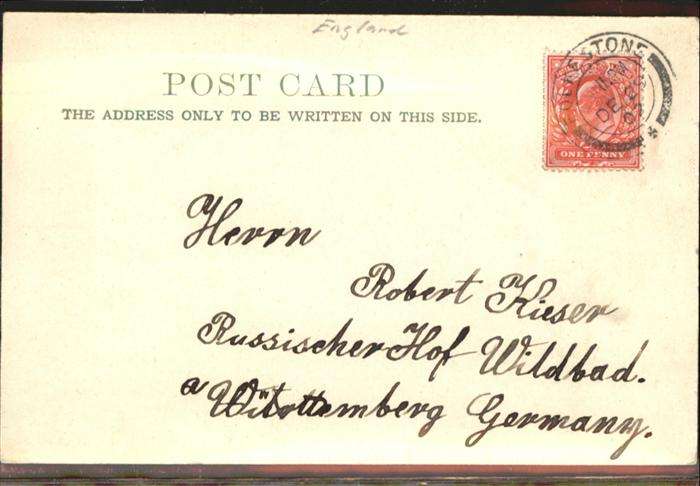 England
POST CARD
THE ADDRESS ONLY TO BE WRITTEN ON THIS SIDE.
FOLKESTONE
DE
ONE PENNY
Herrn
Robert Kieser
Russischer Hof Wildbad.
a Württemberg Germany.